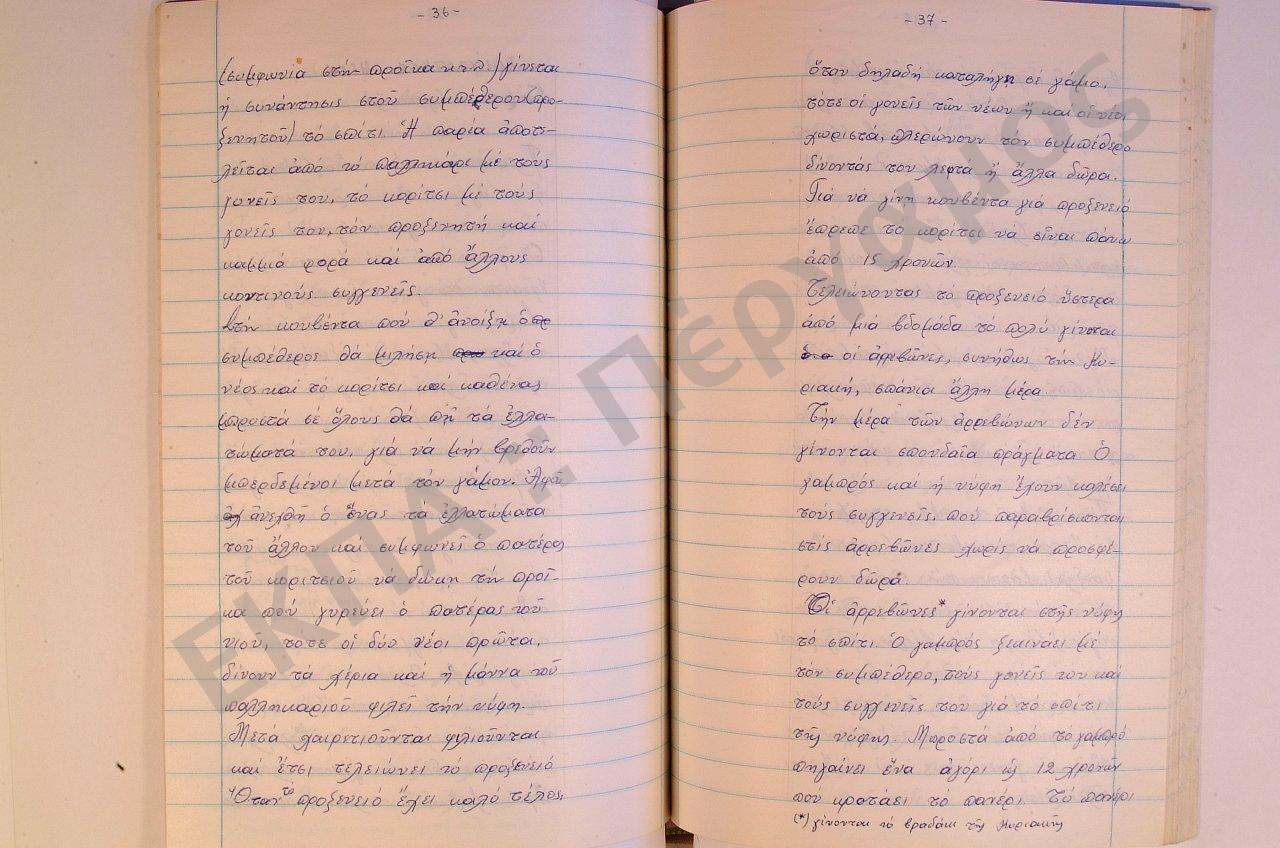 - 36 -
(συμφωνία στήν προῖκα κ.τ.λ.) γίνεται
ἡ συνάντησις στοῦ συμπέθερου (προ-
ξενητοῦ) τό σπίτι. Ἡ παρέα ἀποτε-
λεῖται ἀπό τό παλληκάρι μέ τούς
γονεῖς του, τό κορίτσι μέ τούς
γονεῖς του, τόν προξενητή καί
καμμιά φορά καί ἀπό ἄλλους
κοντινούς συγγενεῖς.
Στήν κουβέντα πού θ' ἀνοίξη ὁ
συμπέθερος θά μιλήση καί ὁ
νέος καί τό κορίτσι καί καθένας
μπροστά σέ ὅλους θά πῆ τά ἐλλα-
τώματά του, γιά νά μήν βρεθοῦν
μπερδεμένοι μετά τόν γάμον. Ἀφοῦ
ἀνεχθῆ ὁ ἕνας τά ἐλλατώματα
τοῦ ἄλλου καί συμφωνεῖ ὁ πατέρας
τοῦ κοριτσιοῦ νά δώκη τήν προῖ-
κα πού γυρεύει ὁ πατέρας τοῦ
νιοῦ, τότε οἱ δύο νέοι πρῶτα,
δίνουν τά χέρια καί ἡ μάννα τοῦ
παλληκαριοῦ φιλεῖ τήν νύφη.
Μετά χαιρετιοῦνται φιλιοῦνται
καί ἔτσι τελειώνει τό προξενειό
Ὅταν τό προξενειό ἔχει καλό τέλος,
- 37 -
ὅταν δηλαδή καταλήγη σέ γάμο,
τότε οἱ γονεῖς τῶν νέων ἤ καί οἱ νέοι
χωριστά, πλερώνουν τόν συμπέθερο
δίνοντάς του λεφτά ἤ ἄλλα δῶρα.
Γιά νά γίνη κουβέντα γιά προξενειό
ἔπρεπε τό κορίτσι νά εἶναι πάνω
ἀπό 15 χρονῶν.
Τελειώνοντας τό προξενειό ὕστερα
ἀπό μιά βδομάδα τό πολύ γίνονται
οἱ ἀρρεβῶνες, συνήθως τήν Κυ-
ριακή, σπάνια ἄλλη μέρα.
Τήν μέρα τῶν ἀρρεβώνων δέν
γίνονται σπουδαῖα πράγματα. Ὁ
γαμπρός καί ἡ νύφη ἔχουν καλέσει
τούς συγγενεῖς, πού παραβρίσκονται
στίς ἀρρεβῶνες χωρίς νά προσφέ-
ρουν δῶρα.
Οἱ ἀρρεβῶνες* γίνονται στῆς νύφης
τό σπίτι. Ὁ γαμπρός ξεκινάει μέ
τόν συμπέθερο, τούς γονεῖς του καί
τούς συγγενεῖς του γιά τό σπίτι
τῆς νύφης. Μπροστά ἀπό τό γαμπρό
πηγαίνει ἕνα ἀγόρι ὡς 12 χρονῶν
πού κρατάει τό πανέρι. Τό πανέρι
(*) γίνονται τό βραδάκι τῆς Κυριακῆς
ΕΚΠΑ :: Πέργαμος